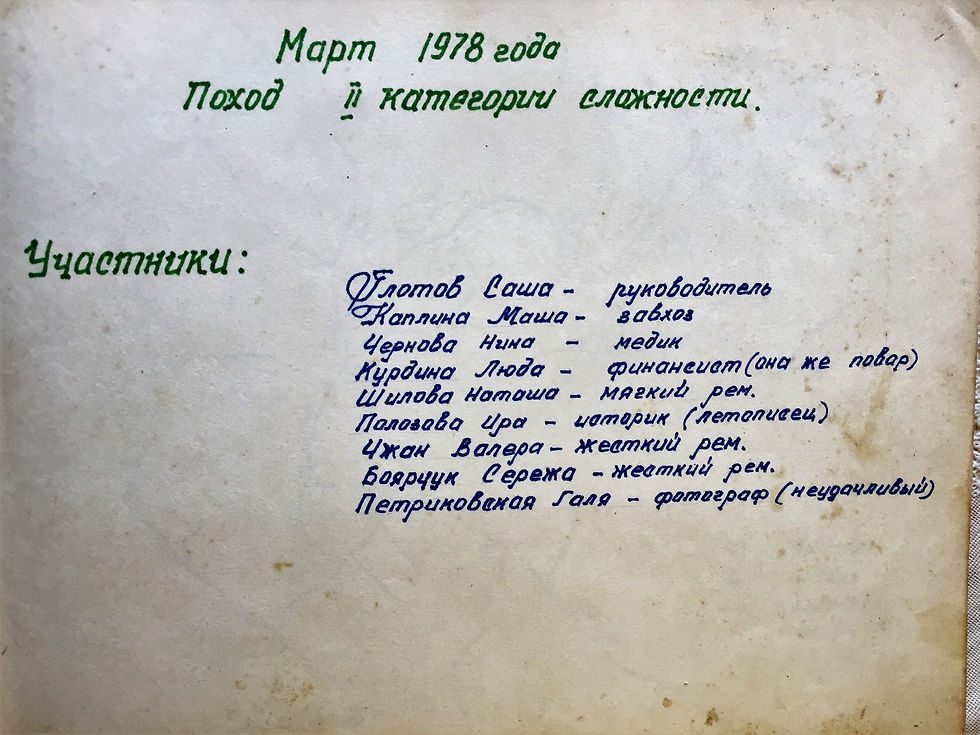 Март 1978 года
Поход II категории сложности.
Участники:
Глотов Саша - руководитель
Каплина Маша - завхоз
Чернова Нина - медик
Курдина Люда - финансист (она же повар)
Шилова Наташа - мягкий рем.
Полозова Ира - историк (летописец)
Чжан Валера - жесткий рем.
Боярчук Сережа - жесткий рем.
Петриковская Галя - фотограф (неудачливый)